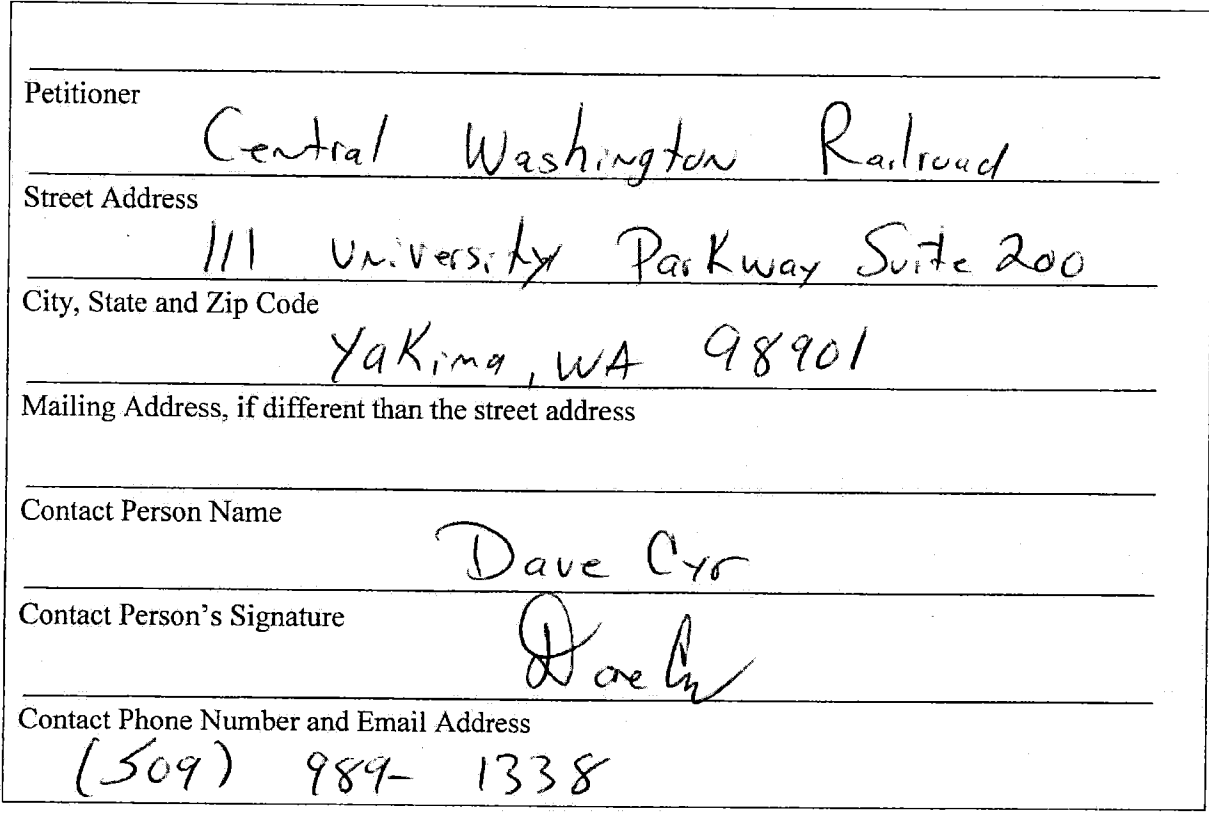 Petitioner
Central Washington Railroad
Street Address
111 University Parkway Suite 200
City, State and Zip Code
Yakima, WA 98901
Mailing Address, if different than the street address
Contact Person Name
Dave Cyr
Contact Person's Signature
Dave Cyr
Contact Phone Number and Email Address
(509) 989-1338